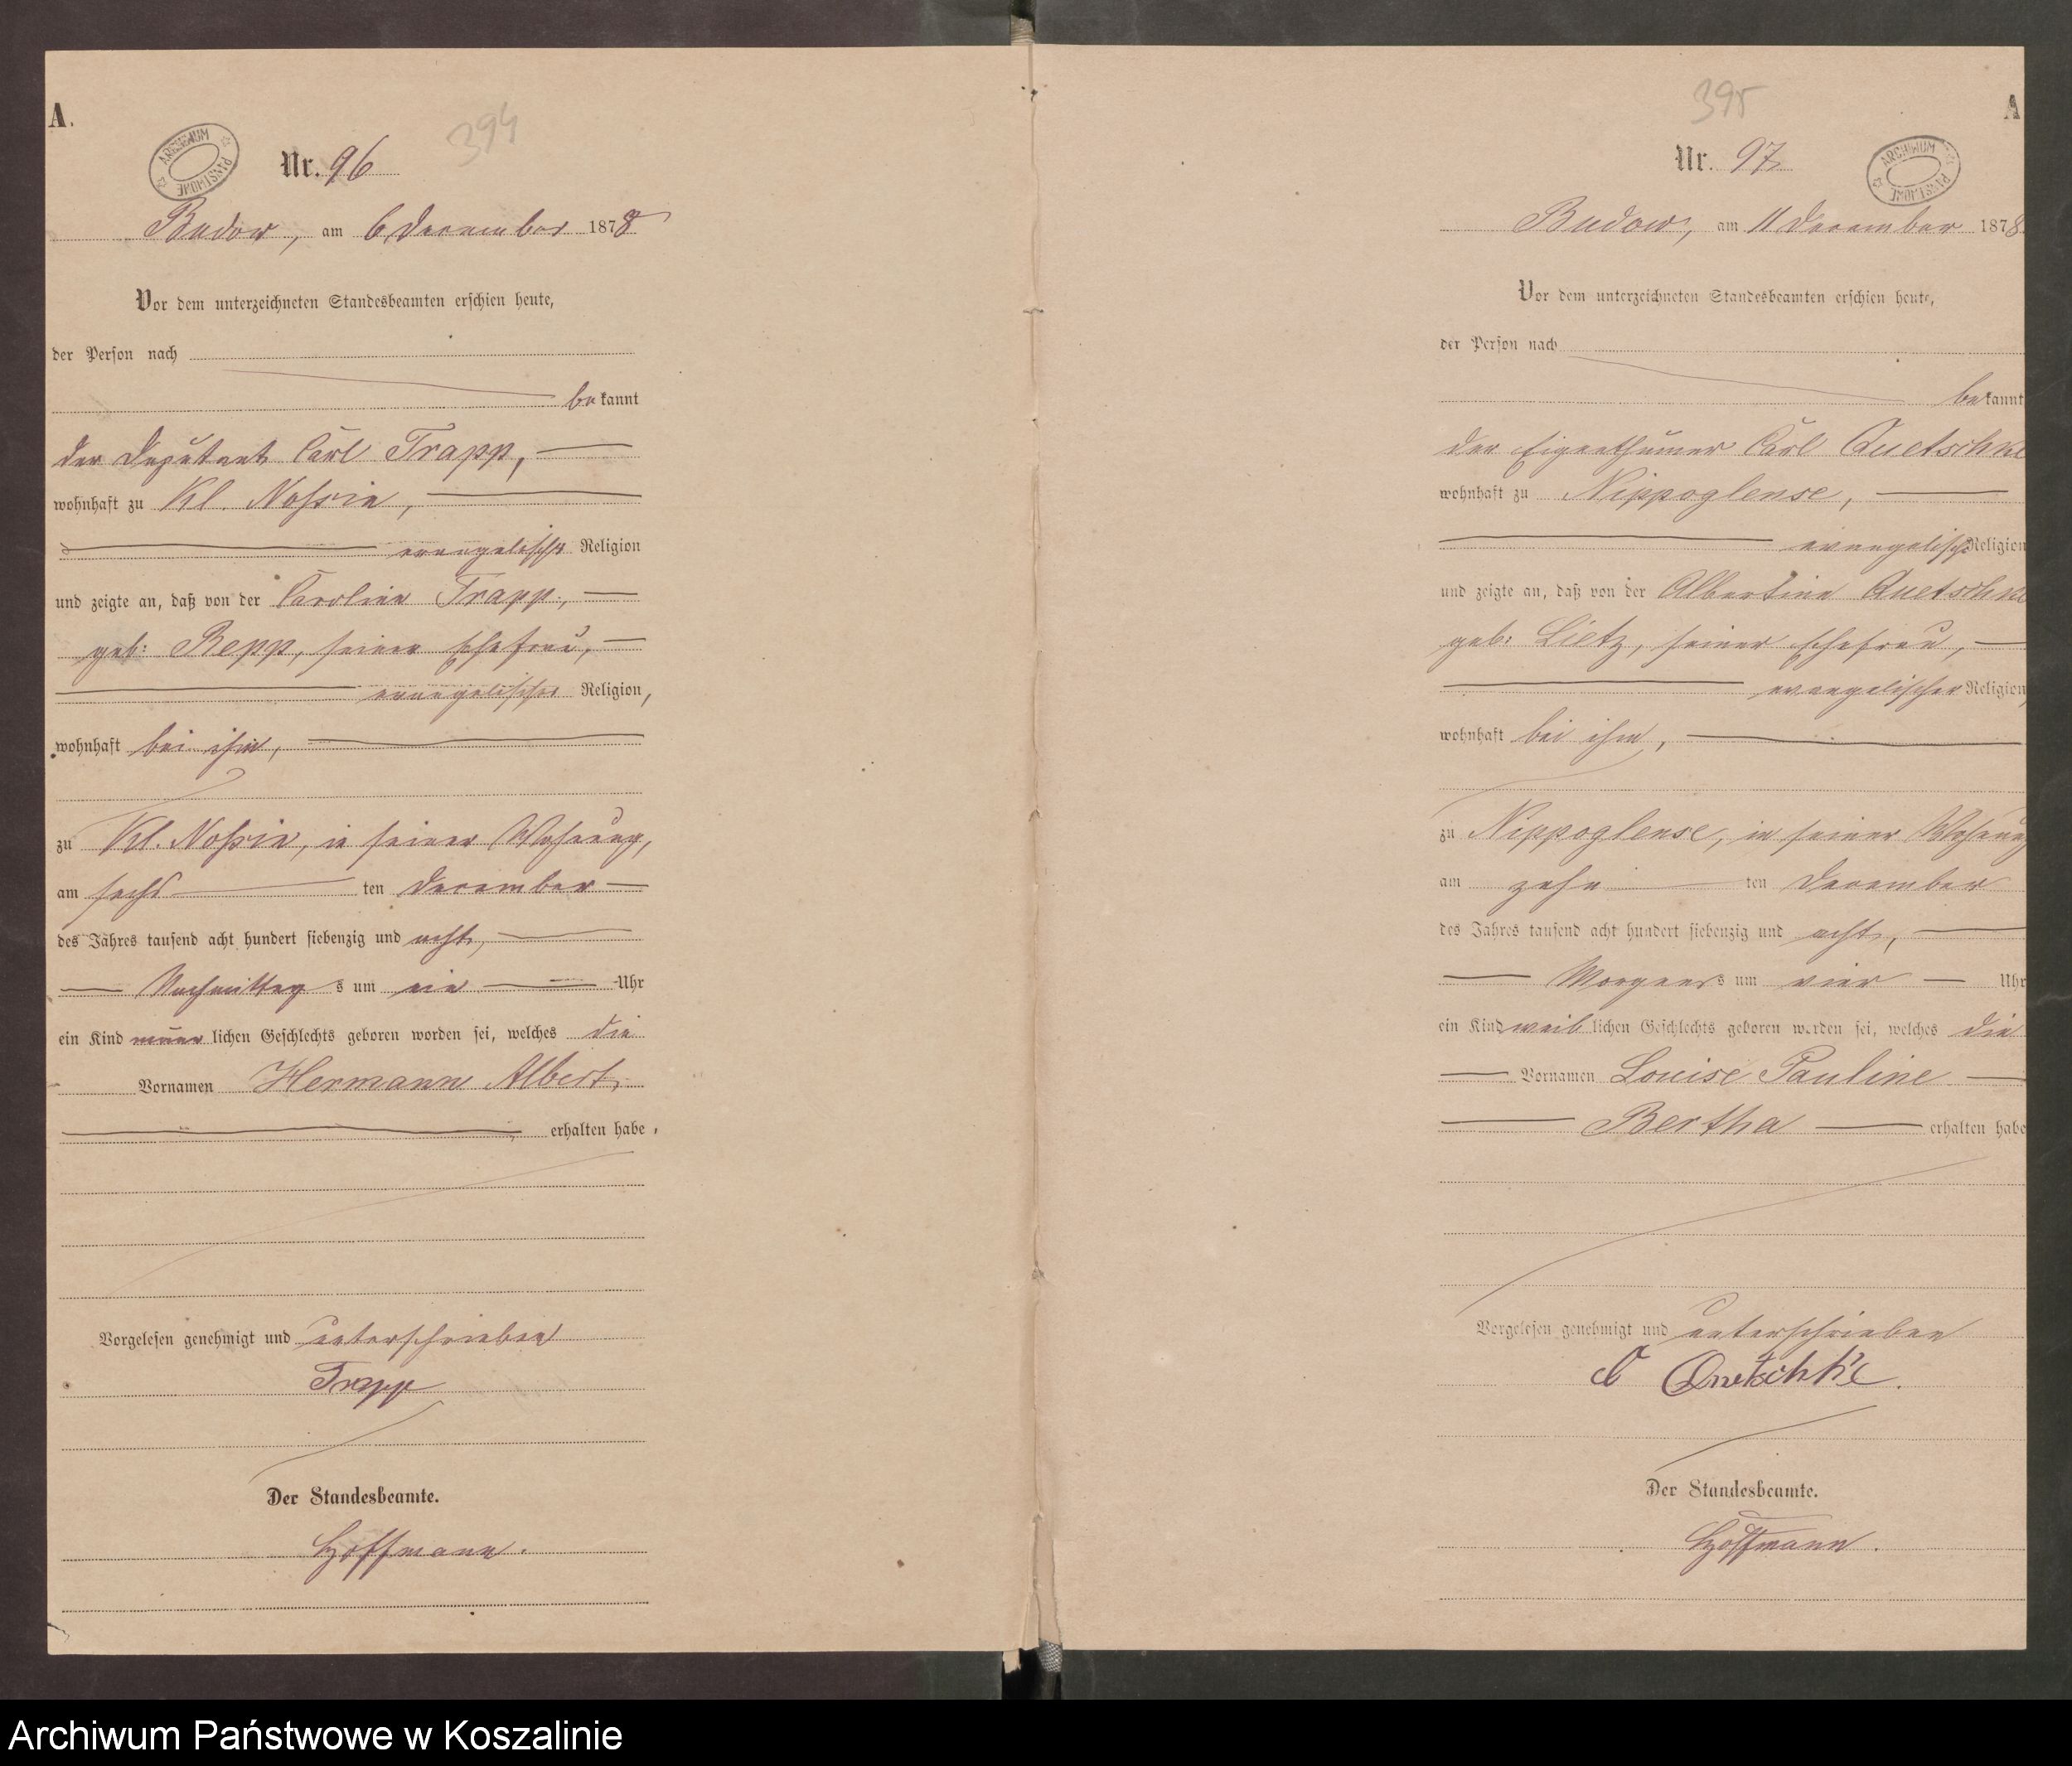 A.
394
ARCHIWUM PAŃSTWOWE
Nr. 96
Budow, am 6 December 1878
Vor dem unterzeichneten Standesbeamten erschien heute,
der Person nach
bekannt
der Deputant Carl Trapp,
wohnhaft zu Kl. Nossin,
evangelischer Religion
und zeigte an, daß von der Caroline Trapp,
geb: Repp, seiner Ehefrau,
evangelischer Religion,
wohnhaft bei ihm,
zu Kl. Nossin, in seiner Wohnung,
am sechs ten December
des Jahres tausend acht hundert siebenzig und acht,
Nachmittags um ein Uhr
ein Kind männlichen Geschlechts geboren worden sei, welches die
Vornamen Hermann Albert
erhalten habe.
Vorgelesen genehmigt und unterschrieben
Trapp
Der Standesbeamte.
Hoffmann.
A
395
ARCHIWUM PAŃSTWOWE
Nr. 97
Budow, am 11 December 1878
Vor dem unterzeichneten Standesbeamten erschien heute,
der Person nach
bekannt
der Eigenthümer Carl Quetschke
wohnhaft zu Nippoglense,
evangelischer Religion
und zeigte an, daß von der Albertine Quetschke
geb: Lietz, seiner Ehefrau,
evangelischer Religion,
wohnhaft bei ihm,
zu Nippoglense, in seiner Wohnung
am zehn ten December
des Jahres tausend acht hundert siebenzig und acht,
Morgens um vier Uhr
ein Kind weiblichen Geschlechts geboren worden sei, welches die
Vornamen Louise Pauline
Bertha erhalten habe
Vorgelesen genehmigt und unterschrieben
C Quetschke.
Der Standesbeamte.
Hoffmann.
Archiwum Państwowe w Koszalinie